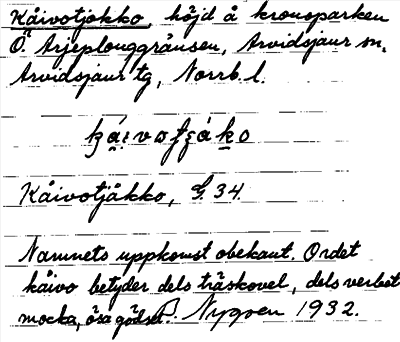 Kåivotjåkko, höjd å kronoparken
Ö. Arjeplouggränsen, Arvidsjaur sn,
Arvidsjaur tg, Norrb. l.
Kåivotjåkko, G. 34.
Namnets uppkomst obekant. Ordet
kåivo betyder dels träskovel, dels verbet
mocka, ösa gödsel. Nygren 1932.